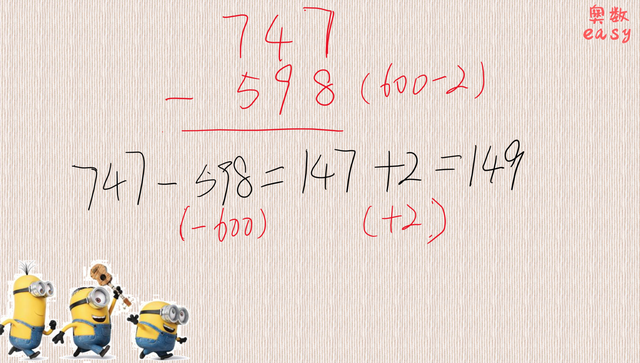 奥数
easy
747
- 598 (600-2)
747-598=147+2=149
(-600) (+2)